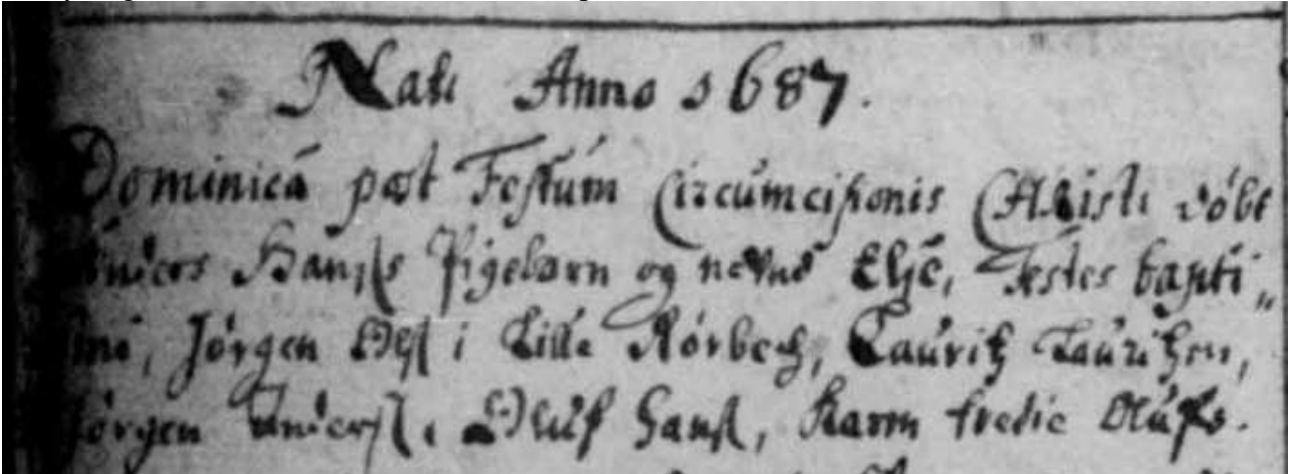 Nati Anno 1687.
Dominicâ post Festum Circumcisionis Christi døbt
Anders Hansens Pigebarn og nevnd Else, Testes bapti„
smi, Jørgen Ols: i Lille Rørbech, Lauritz Lauritzen,
Jørgen Anders:, Oluf Hans:, Karen Oluf's.